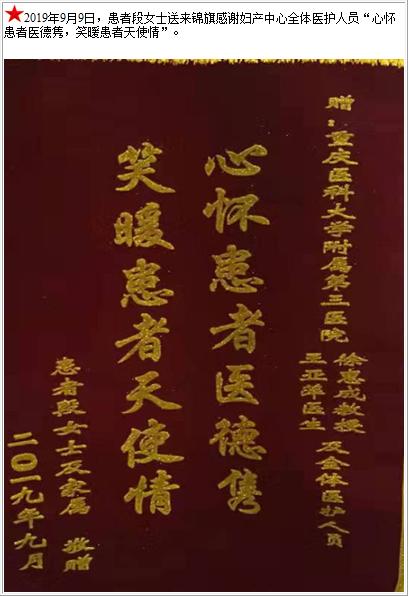 ★2019年9月9日，患者段女士送来锦旗感谢妇产中心全体医护人员“心怀
患者医德隽，笑暖患者天使情”。
赠：重庆医科大学附属第三医院
徐惠成教授
王亚萍医生
及全体医护人员
心怀患者医德隽
笑暖患者天使情
患者段女士及家属 敬赠
二〇一九年九月